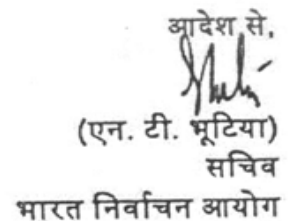 आदेश से,
(एन. टी. भूटिया)
सचिव
भारत निर्वाचन आयोग